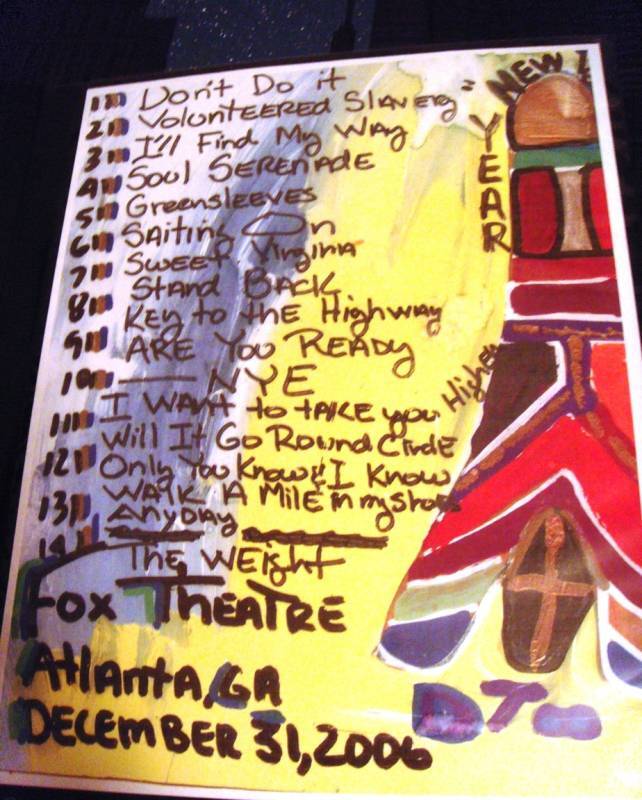 1 Don't Do it
2 Volunteered Slavery
3 I'll Find My Way
4 Soul SERENADE
5 Greensleeves
6 Sailing On
7 Sweet Virginia
Stand Back
8 Key to the Highway
9 ARE You READY
10 NYE
I WANT to tAKE you Higher
11 Will It Go Round Circle
12 Only You Know & I Know
WAlk A Mile in my Shoes
13 Anyday
14 The WEIGHt
Fox THEATRE
Atlanta, GA
DECEMBER 31, 2006
NEW
YEAR
DT